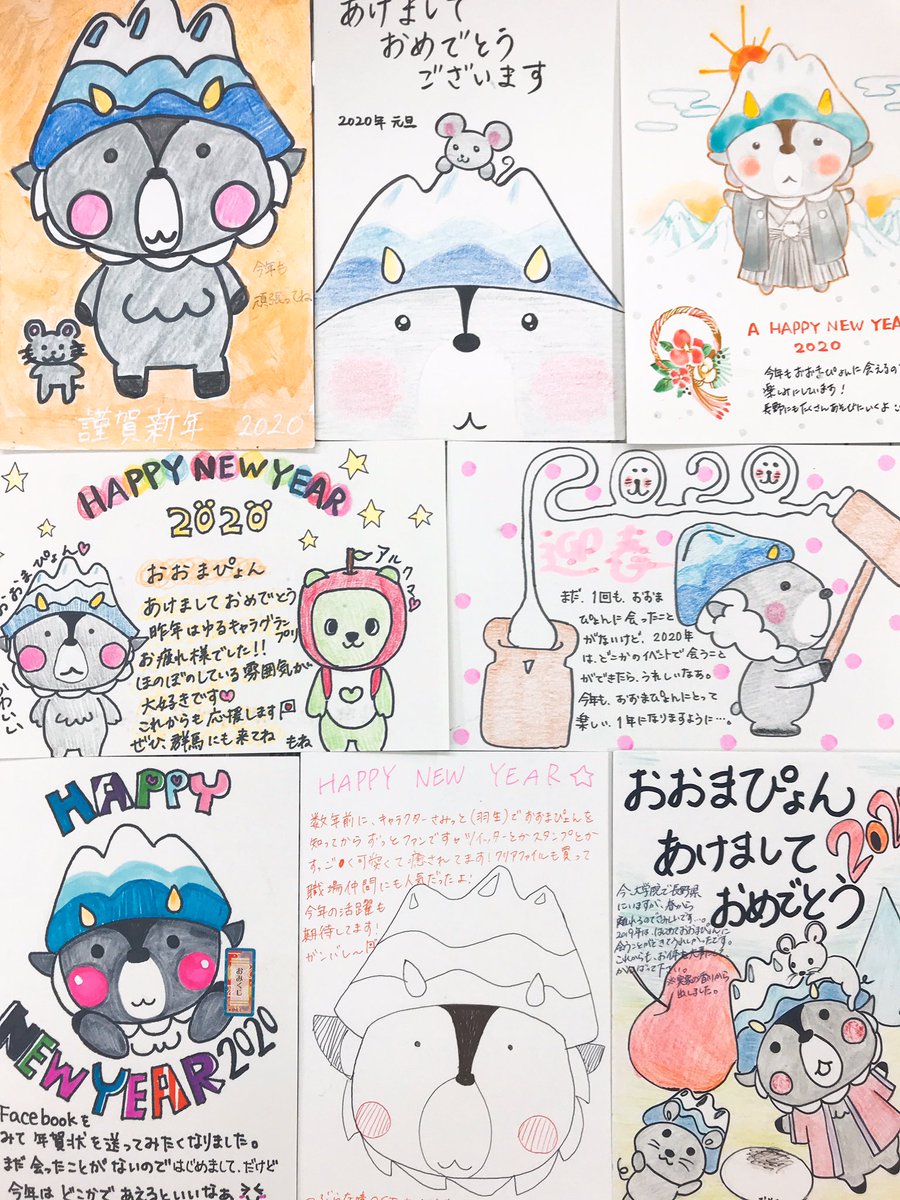 今年も
頑張ってね
謹賀新年 2020
あけまして
おめでとう
ございます
2020年 元旦
A HAPPY NEW YEA
2020
今年もおおまぴょんに会えるの
楽しみにしています!
長野にもたくさんあそびにいくよ
HAPPY NEW YEAR
2020
おおまぴょん♡
かわいい
おおまぴょん
あけましておめでとう
昨年はゆるキャラグランプリ
お疲れ様でした!!
ほのぼのしている雰囲気が
大好きです♡
これからも応援します
ぜひ、群馬にも来てね
もね
アルクマ♡
2020
迎春
まだ、1回も、おおま
ぴょんに会ったこと
がないけど、2020年
は、どこかのイベントで会うこと
ができたら、うれしいなぁ。
今年も、おおまぴょんにとって
楽しい、1年になりますように…。
HAPPY
NEW YEAR 2020
おみくじ
Facebookを
みて 年賀状を送ってみたくなりました。
まだ会ったことがないのではじめまして、だけど
今年は どこかで あえるといいなぁ
HAPPY NEW YEAR☆
数年前に、キャラクターさみっと(羽生)でおおまぴょんを
知ってからずっとファンですツイッターとかスタンプとか
すっごく可愛くて癒されてます!クリアファイルも買って
職場仲間にも人気だったよ!
今年の活躍も
期待してます!
ガンバレ〜
おおまぴょん
あけまして
おめでとう
202
今、大学院で長野県
にいますが、春から
離れるのでさみしいです…。
2019年は、はじめておおまぴょんに
会うことができてうれしかったです。
これからも、お体を大事に
がんばって下さい。
※実家の香川から
出しました。